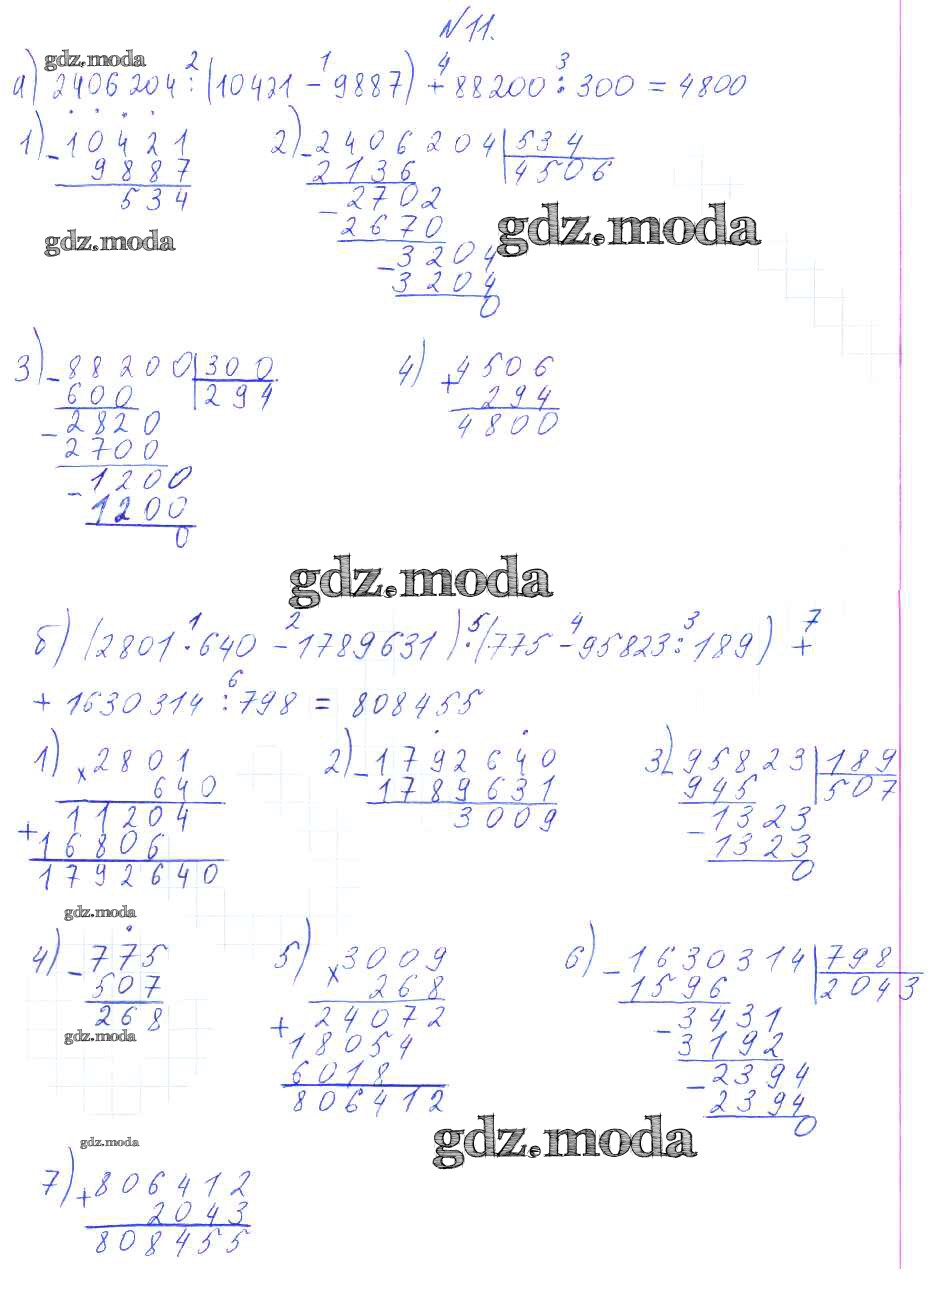 №11.
gdz.moda
а) 2406204 : (10421 - 9887) + 88200 : 300 = 4800
2 1 4 3
1) - 10421
9887
534
2) - 2406204 | 534
2136 | 4506
- 2702
2670
- 3204
3204
0
gdz.moda
gdz.moda
3) - 88200 | 300
600 | 294
- 2820
2700
- 1200
1200
0
4) + 4506
294
4800
gdz.moda
1 2 5 4 3 7
б) (2801 · 640 - 1789631) · (775 - 95823 : 189) +
6
+ 1630314 : 798 = 808455
1) × 2801
640
+ 11204
16806
1792640
2) - 1792640
1789631
3009
3) - 95823 | 189
945 | 507
- 1323
1323
0
gdz.moda
4) - 775
507
268
gdz.moda
5) × 3009
268
+ 24072
18054
6018
806412
6) - 1630314 | 798
1596 | 2043
- 3431
3192
- 2394
2394
0
gdz.moda
gdz.moda
7) + 806412
2043
808455